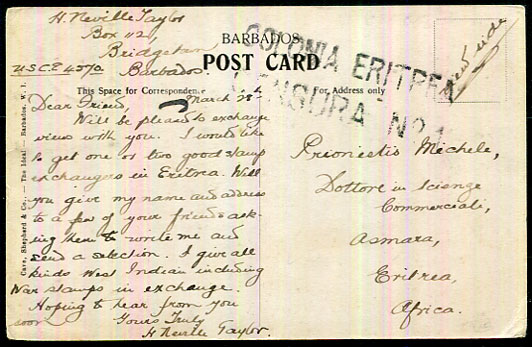 H. Neville Taylor
Box 112,
Bridgetown
Barbados.
U.S.C.E 4570
BARBADOS.
POST CARD
COLONIA ERITREA
CENSURA No 1
This Space for Correspondence
For Address only
Dear Friend, March 28-
Will be pleased to exchange
views with you. I would like
to get one or two good stamp
exchangers in Eritrea. Will
you give my name and address
to a few of your friends ask-
ing them to write me and
send a selection. I give all
kinds West Indian including
War stamps in exchange.
Hoping to hear from you
soon
Yours Truly
H Neville Taylor.
Prionestis Michele,
Dottore in Scienze
Commerciali,
Asmara,
Eritrea,
Africa.
Cave, Shepherd & Co. — The Ideal — Barbados, W. I.